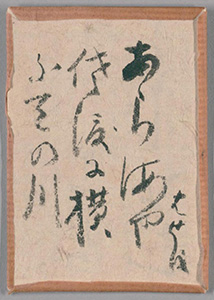 あら海や
佐渡に横
ふ天の川
はせを